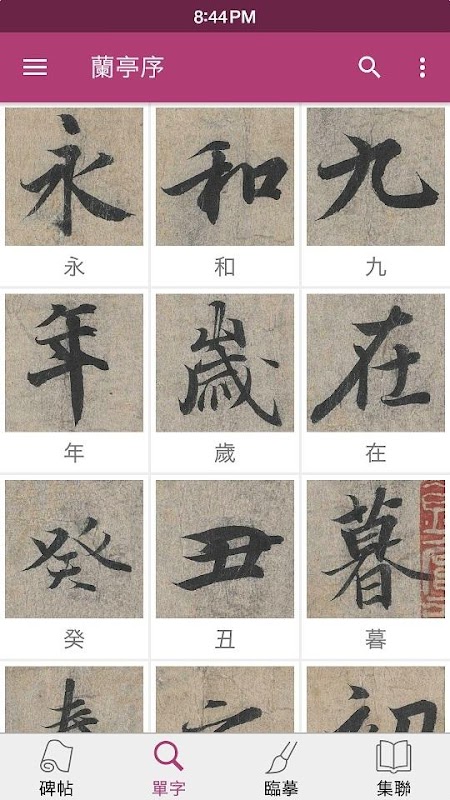 8:44PM
蘭亭序
永 和 九
永 和 九
年 歲 在
年 歲 在
癸 丑 暮
癸 丑 暮
碑帖 單字 臨摹 集聯